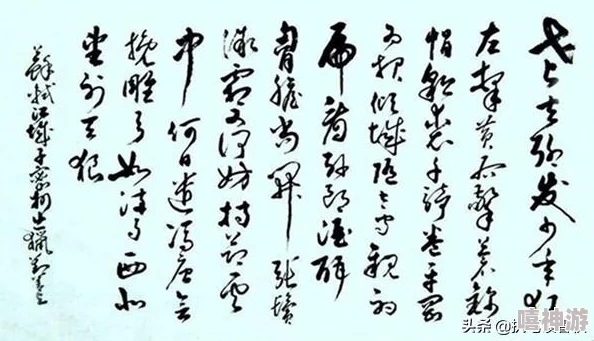 老夫聊发少年狂
左牵黄右擎苍锦
帽貂裘千骑卷平冈
为报倾城随太守亲射
虎看孙郎酒酣
胸胆尚开张鬓
微霜又何妨持节云
中何日遣冯唐会
挽雕弓如满月西北
望射天狼
苏轼江城子密州出猎
头条 @执笔
嘻神游